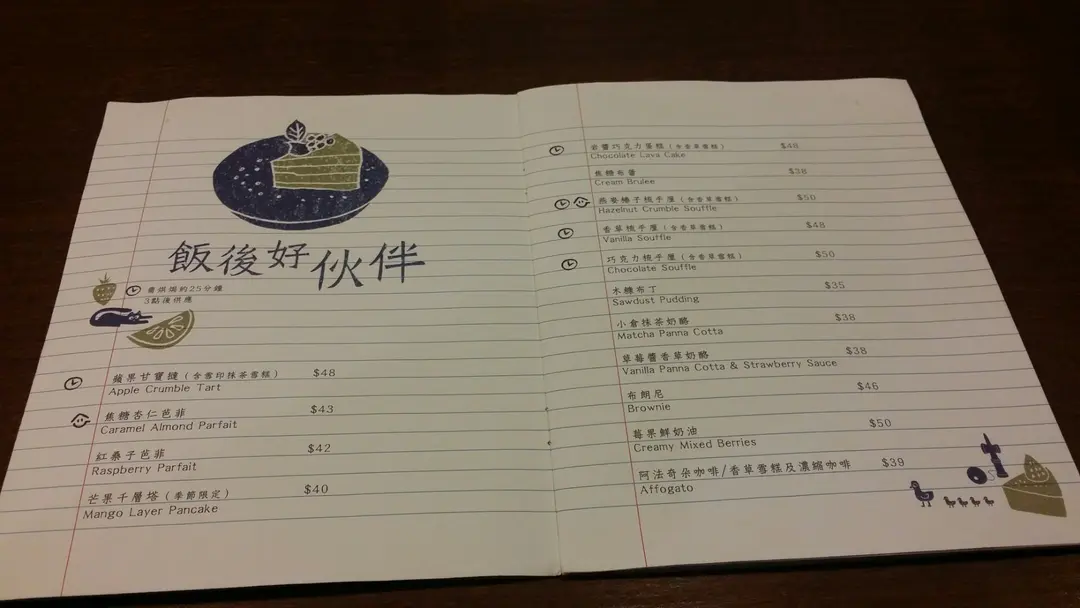 飯後好伙伴
需烘焗約25分鐘
3點後供應
蘋果甘寶撻(含雪印抹茶雪糕) $48
Apple Crumble Tart
焦糖杏仁芭菲 $43
Caramel Almond Parfait
紅桑子芭菲 $42
Raspberry Parfait
芒果千層塔(季節限定) $40
Mango Layer Pancake
岩醬巧克力蛋糕(含香草雪糕) $48
Chocolate Lava Cake
焦糖布醬 $38
Cream Brulee
燕麥榛子梳乎厘(含香草雪糕) $50
Hazelnut Crumble Souffle
香草梳乎厘(含香草雪糕) $48
Vanilla Souffle
巧克力梳乎厘(含香草雪糕) $50
Chocolate Souffle
木糠布丁 $35
Sawdust Pudding
小倉抹茶奶酪 $38
Matcha Panna Cotta
草莓醬香草奶酪 $38
Vanilla Panna Cotta & Strawberry Sauce
布朗尼 $46
Brownie
莓果鮮奶油 $50
Creamy Mixed Berries
阿法奇朵咖啡/香草雪糕及濃縮咖啡 $39
Affogato